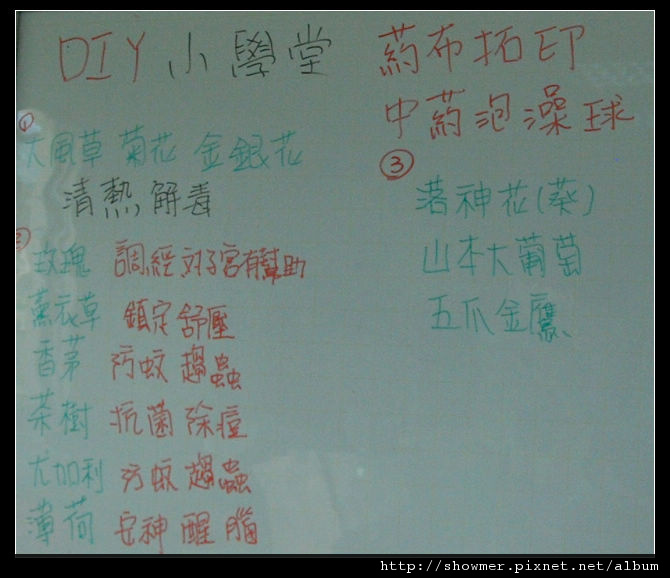 DIY 小學堂
藥布拓印
中藥泡澡球
①
大風草 菊花 金銀花
清熱解毒
②
玫瑰 調經 對子宮有幫助
薰衣草 鎮定舒壓
香茅 防蚊 趨蟲
茶樹 抗菌除痘
尤加利 防蚊趨蟲
薄荷 安神醒腦
③
洛神花(葵)
山本大葡萄
五爪金鷹
http://showmer.pixnet.net/album